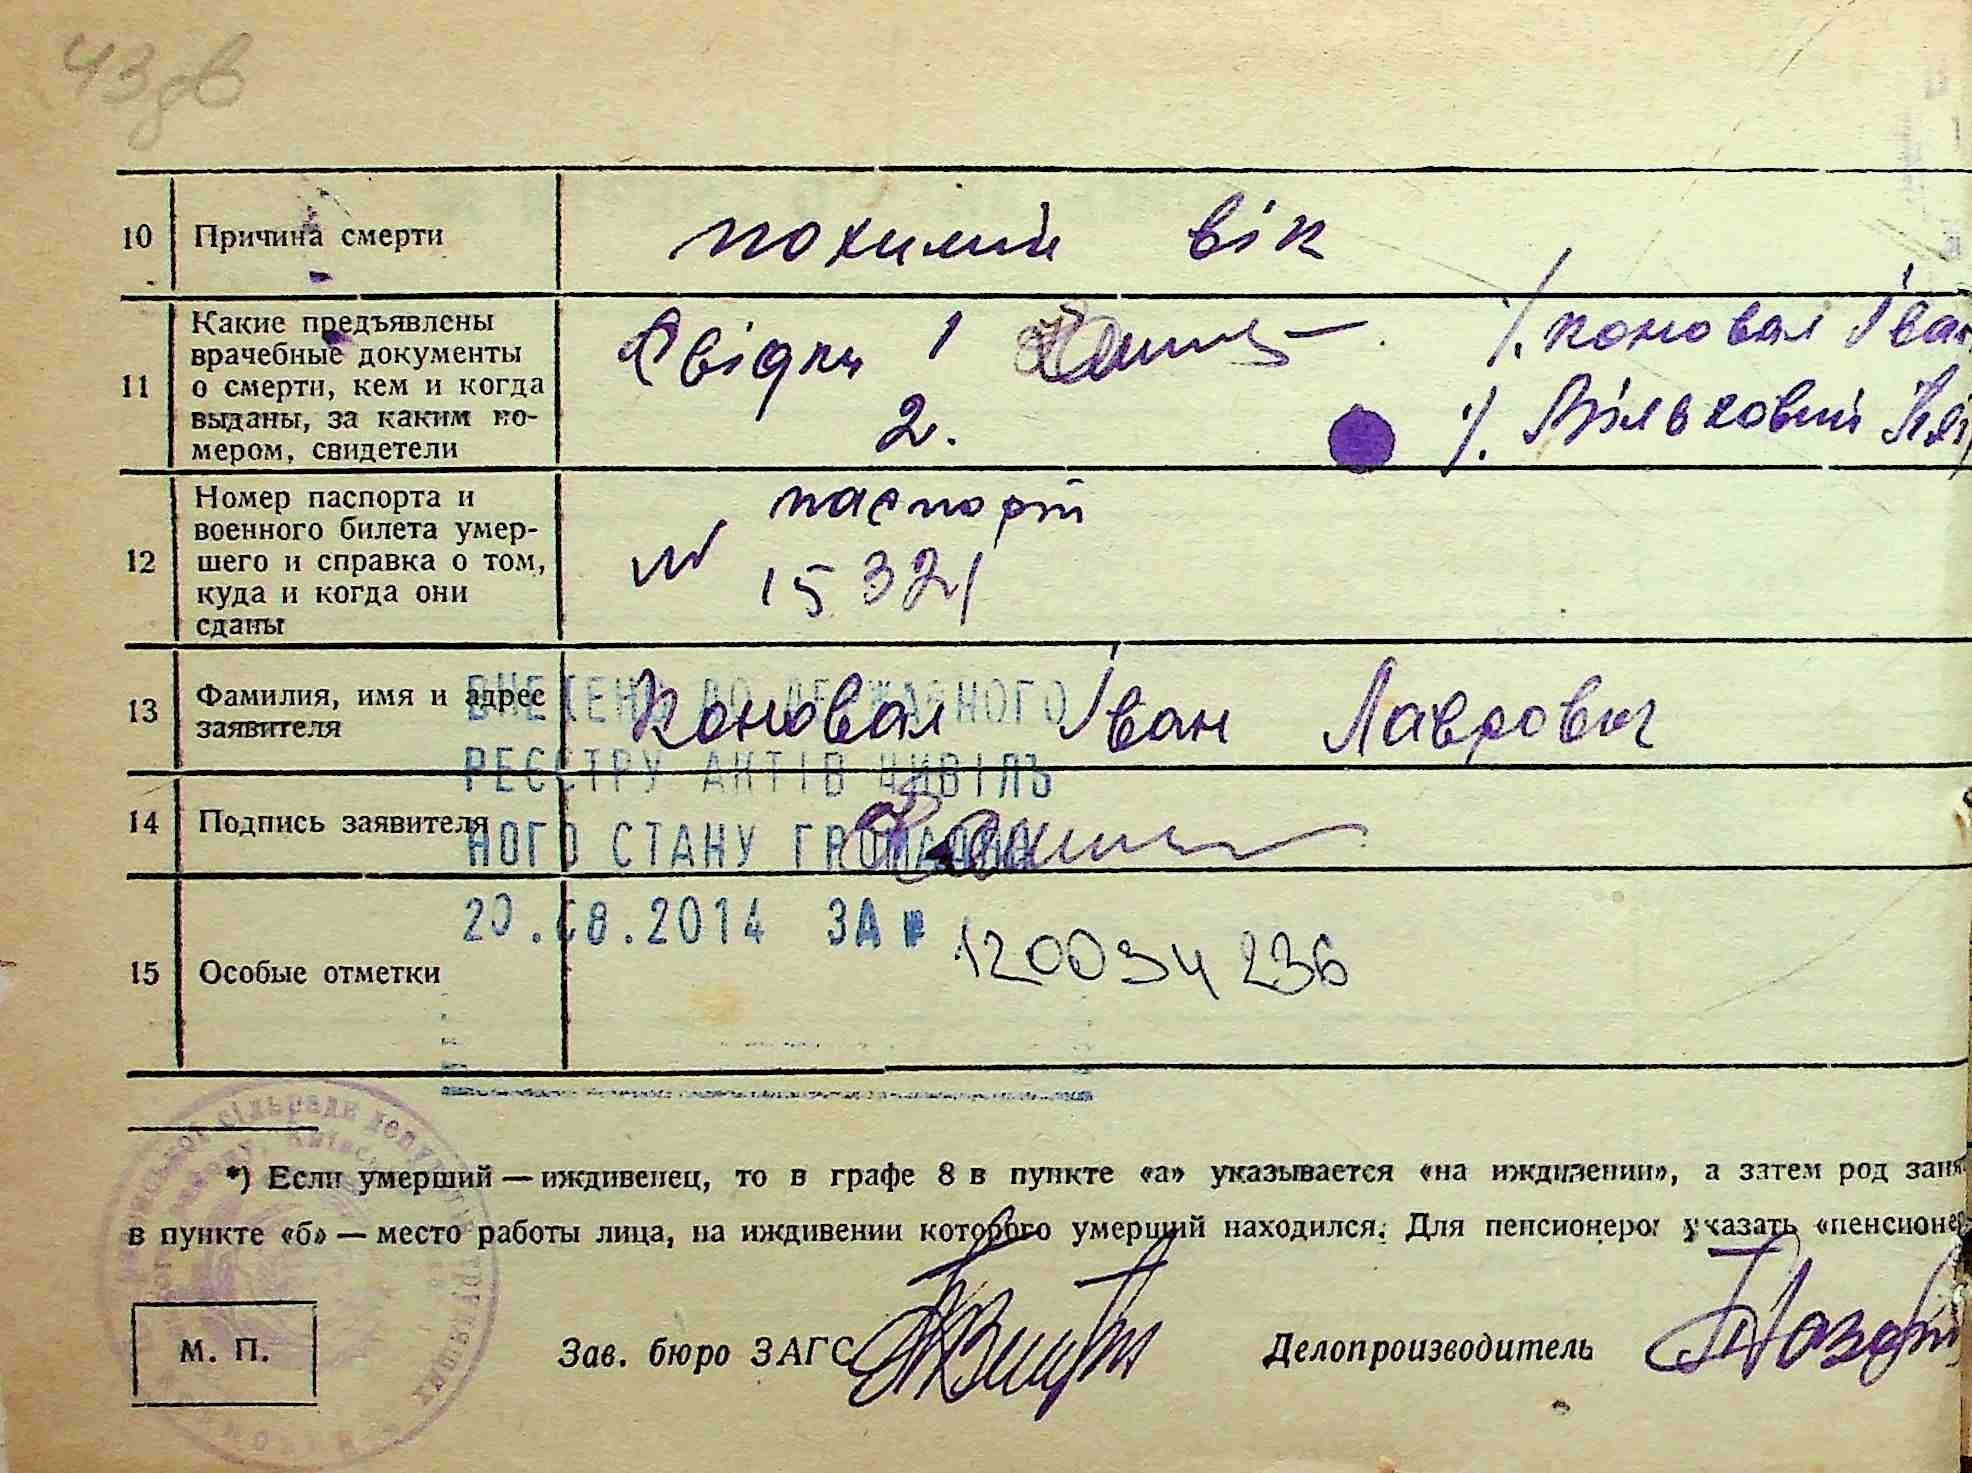 43зв
10 Причина смерти похилий вік
11 Какие предъявлены
врачебные документы
о смерти, кем и когда
выданы, за каким но-
мером, свидетели
Свідки 1 /. Коновал Іван
2. /. Вільховий
12 Номер паспорта и
военного билета умер-
шего и справка о том,
куда и когда они
сданы
паспорт
№ 15321
13 Фамилия, имя и адрес
заявителя
Коновал Іван Лаврович
14 Подпись заявителя
ВНЕСЕНО ДО ДЕРЖАВНОГО
РЕЄСТРУ АКТІВ ЦИВІЛЬ
НОГО СТАНУ ГРОМАДЯН
20.08.2014 ЗА № 120034236
15 Особые отметки
*) Если умерший — иждивенец, то в графе 8 в пункте «а» указывается «на иждивении», а затем род заня
в пункте «б» — место работы лица, на иждивении которого умерший находился. Для пенсионеров указать «пенсионер
М. П. Зав. бюро ЗАГС Делопроизводитель